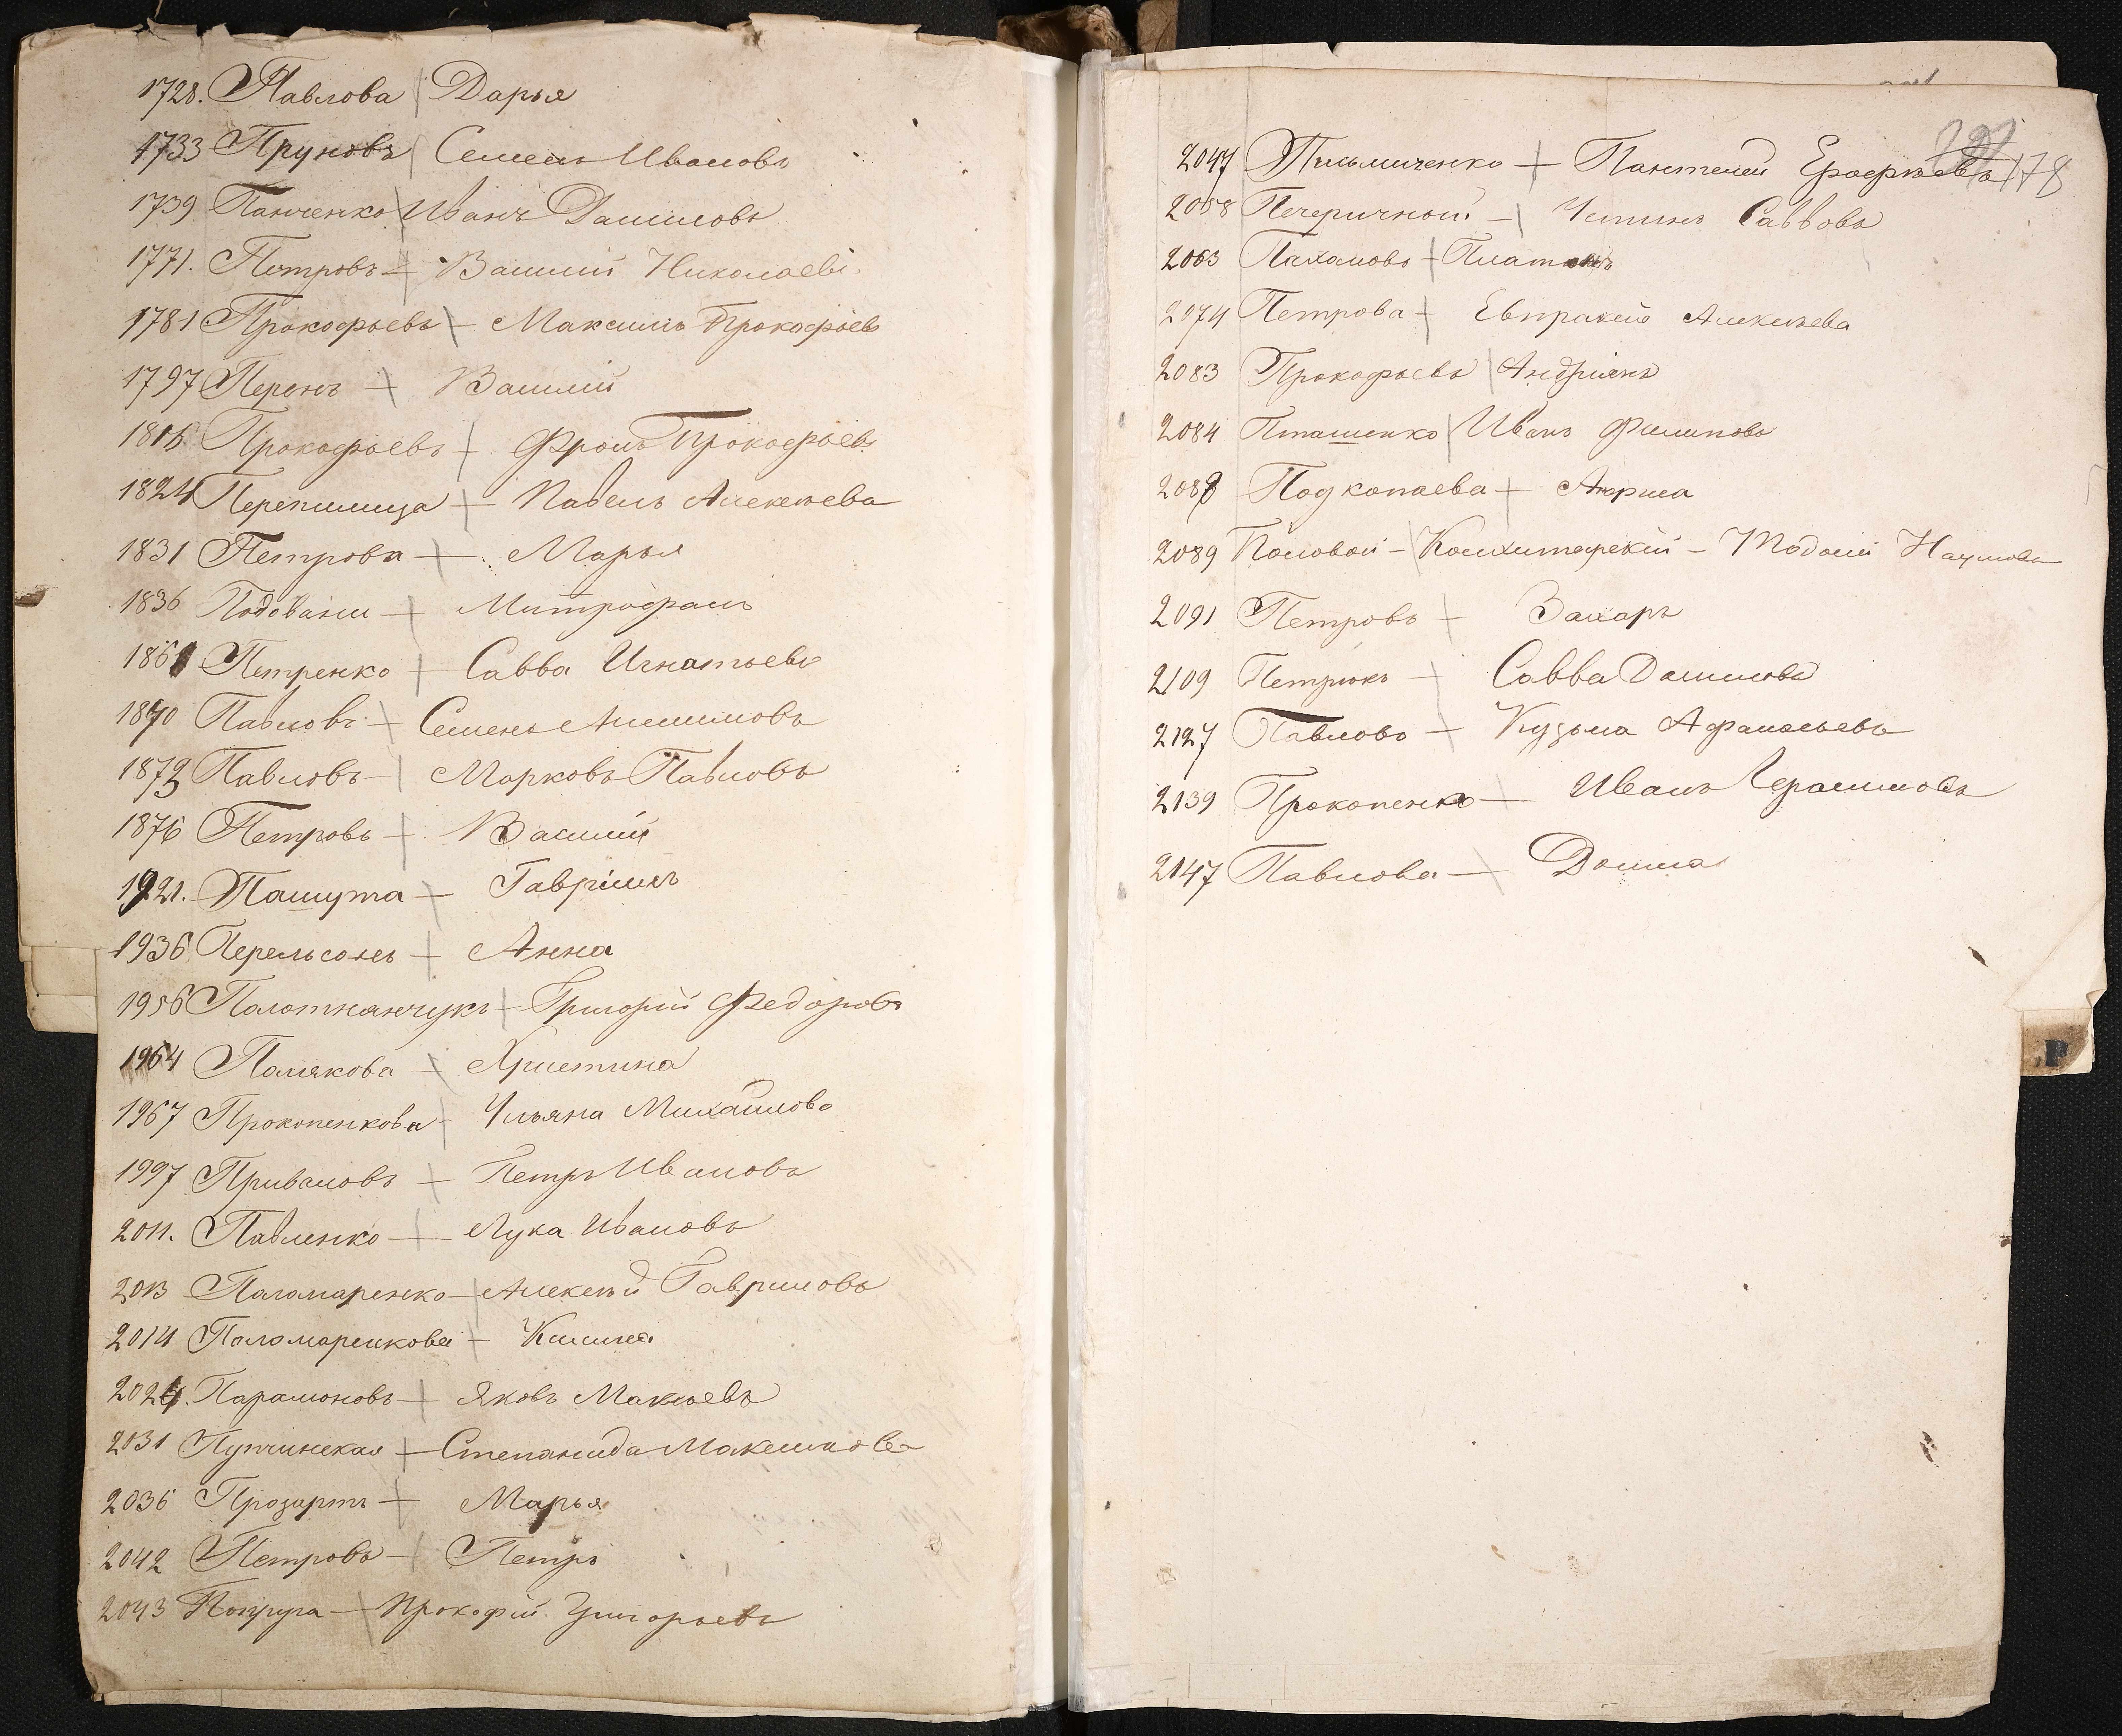 1728. Павлова Дарья
1733 Пруновъ Семенъ Ивановъ
1739 Панченко Иванъ Даниловъ
1771. Петровъ - Василий Николаевъ
1781 Прокофьевъ - Максимъ Прокофьевъ
1797 Перонъ - Василий
Прокофьевъ - Фролъ Прокофьевъ
1824 Перепилица - Павелъ Алексеева
1831 Петрова - Марья
1836 - Митрофанъ
1861 Петренко - Савва Игнатьевъ
1870 Павловъ - Семенъ Анисимовъ
Павловъ - Марковъ Павловъ
1876 Петровъ - Василий
1921. Пашута - Гавріилъ
1936 Перельсонъ - Анна
1956 Полотнянчукъ - Григорий Федоровъ
1964 Полякова - Христина
1967 Прокопенкова - Ульяна Михайлова
1997 Приваловъ - Петръ Ивановъ
2011. Павленко - Лука Ивановъ
2013 Паламаренко - Алексѣй Гавриловъ
2014 Поломаренкова - Килина
2024. Парамоновъ - Яковъ
2031 Пупчинская - Степанида Максимова
2036 Прозартъ - Марья
2042 Петровъ - Петръ
2043 Попруга - Прокофій Григорьевъ
178
2047 Письмиченко - Пантелей Ерофѣевъ
2058 Печеричной - Устинъ Саввовъ
2063 Пахомовъ - Платонъ
2074 Петрова - Евпраксия Алексѣева
2083 Прокофьевъ Андріянъ
2084 Пташенко Иванъ Филиповъ
Подкопаева -
2089 Половой - - Наумовъ
2091 Петровъ - Захаръ
2109 Петрюкъ - Савва Даниловъ
2127 Павловъ - Кузьма Афанасьевъ
2139 Прокопенко - Иванъ Герасимовъ
2147 Павлова - Домна
Р